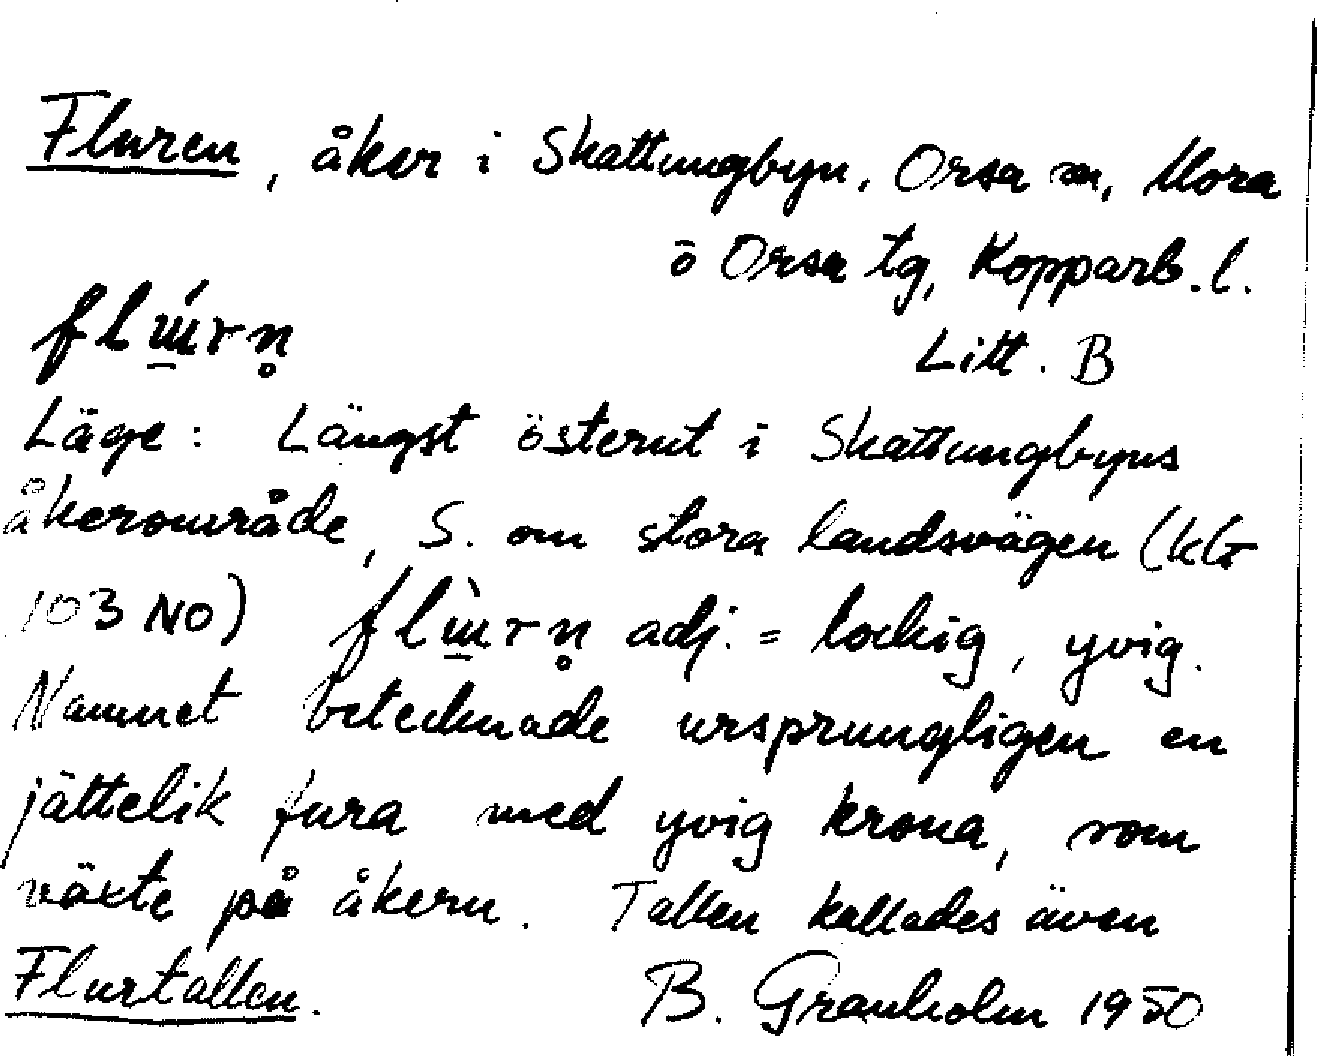 Fluren, åker i Skattungbyn, Orsa sn, Mora
ō Orsa tg, Kopparb. l.
Litt. B
Läge: Längst österut i Skattungbyns
åkerområde, S. om stora landsvägen (kbl
103 NO) adj. = lockig, yvig.
Namnet betecknade ursprungligen en
jättelik fura med yvig krona, som
växte på åkern. Tallen kallades även
Flurtallen. B. Granholm 1950